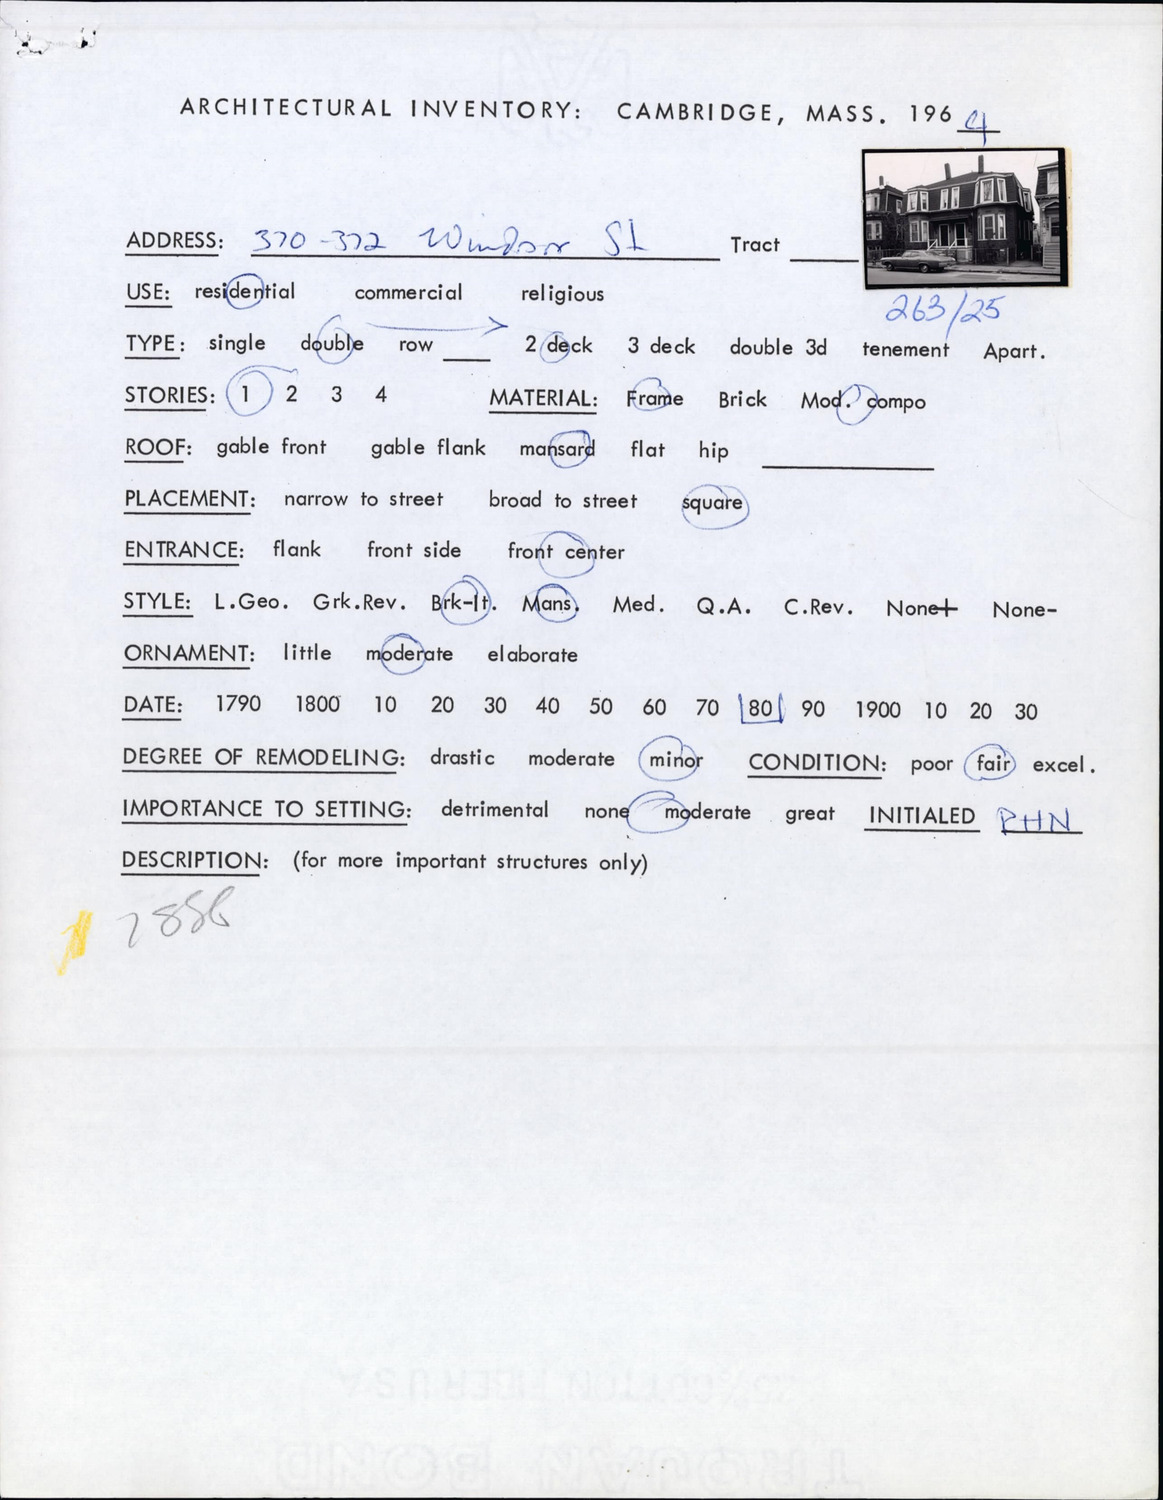 ARCHITECTURAL INVENTORY: CAMBRIDGE, MASS. 1964
ADDRESS: 370-372 Windsor St Tract
263/25
USE: residential commercial religious
TYPE: single double row 2 deck 3 deck double 3d tenement Apart.
STORIES: 1 2 3 4 MATERIAL: Frame Brick Mod. compo
ROOF: gable front gable flank mansard flat hip
PLACEMENT: narrow to street broad to street square
ENTRANCE: flank front side front center
STYLE: L.Geo. Grk.Rev. Brk-It. Mans. Med. Q.A. C.Rev. None+ None-
ORNAMENT: little moderate elaborate
DATE: 1790 1800 10 20 30 40 50 60 70 80 90 1900 10 20 30
DEGREE OF REMODELING: drastic moderate minor CONDITION: poor fair excel.
IMPORTANCE TO SETTING: detrimental none moderate great INITIALED PHN
DESCRIPTION: (for more important structures only)